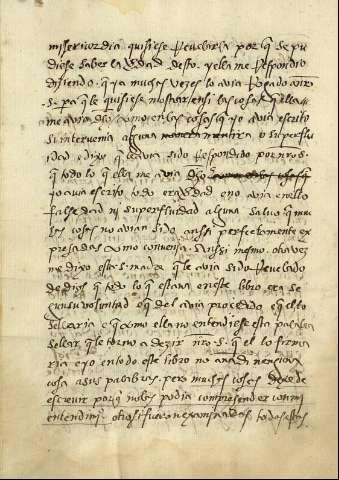 misericordia quisiese Revelarla porq̃ se pu
diese saber la v̾dad desto. y ella me Respondio
diziendo. que ya muchas vezes lo avia Rogado a nr̃o
s.or pa q̃ le quisiese mostrar si en las cosas q̃ ella
me avia dho como en las cosas q̃ yo avia escrito
si intervenia alguna mentira o superflu
idad. e dixo q̃ le avia sido Respondido por nr̃o s.or
que todo lo q̃ ella me avia dho
yo avia escrito todo era v̾dad e no avia en ello
falsedad ni superfluidad alguna salvo q̃ mu
chas cosas no avian sido anssi perfectamente ex
presadas como convenia. Y anssi mesmo. otra vez
me dixo esta s. madre q̃ le avia sido Revelado
de dios q̃ todo lo q̃ estava en este libro era se
gun su voluntad e q̃ del avia procedido e q̃ el lo
sellaria e q̃ como ella no entendiese esta palabra
sellar que le torno a dezir nr̃o s.or q̃ el lo firma
ria e yo en todo este libro no añadi ninguna
cosa a sus palabras. pero muchas cosas dexe de
escrevir porq̃ no las podia comprehender con mi
entendimi.o otrosi fueron examinadas todas estas